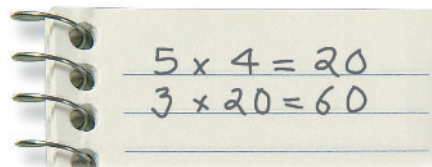 5 x 4 = 20
3 x 20 = 60